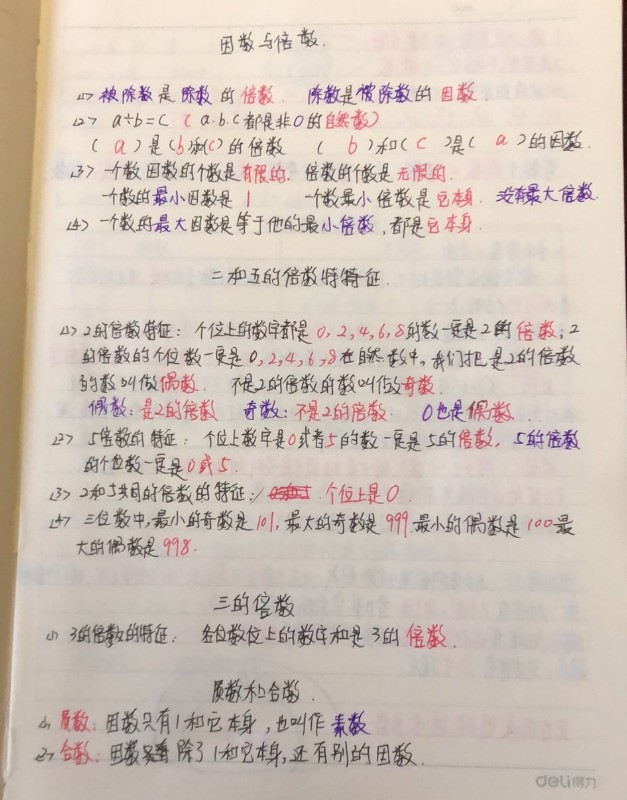 因数与倍数.
<1> 被除数是除数的倍数. 除数是被除数的因数.
<2> a÷b=c (a.b.c都是非0的自然数)
(a)是(b和c)的倍数 (b)和(c)是(a)的因数.
<3> 一个数因数的个数是有限的. 倍数的个数是无限的.
一个数的最小因数是1 一个数最小倍数是它本身. 没有最大倍数.
<4> 一个数的最大因数是等于他的最小倍数,都是它本身.
二和五的倍数特特征.
<1> 2的倍数特征: 个位上的数字都是0,2,4,6,8的数一定是2的倍数;2
的倍数的个位数一定是0,2,4,6,8在自然数中,我们把是2的倍数
的数叫做偶数. 不是2的倍数的数叫作奇数.
偶数:是2的倍数 奇数:不是2的倍数. 0也是偶数.
<2> 5倍数的特征: 个位上数字是0或者5的数一定是5的倍数, 5的倍数
的个位数一定是0或5.
<3> 2和5共同的倍数的特征: 个位上是0.
<4> 三位数中,最小的奇数是101,最大的奇数是999.最小的偶数是100.最
大的偶数是998.
三的倍数
<1> 3的倍数的特征: 各位数位上的数字和是3的倍数.
质数和合数.
<1> 质数:因数只有1和它本身,也叫作素数
<2> 合数:因数除了1和它本身,还有别的因数.
deli得力